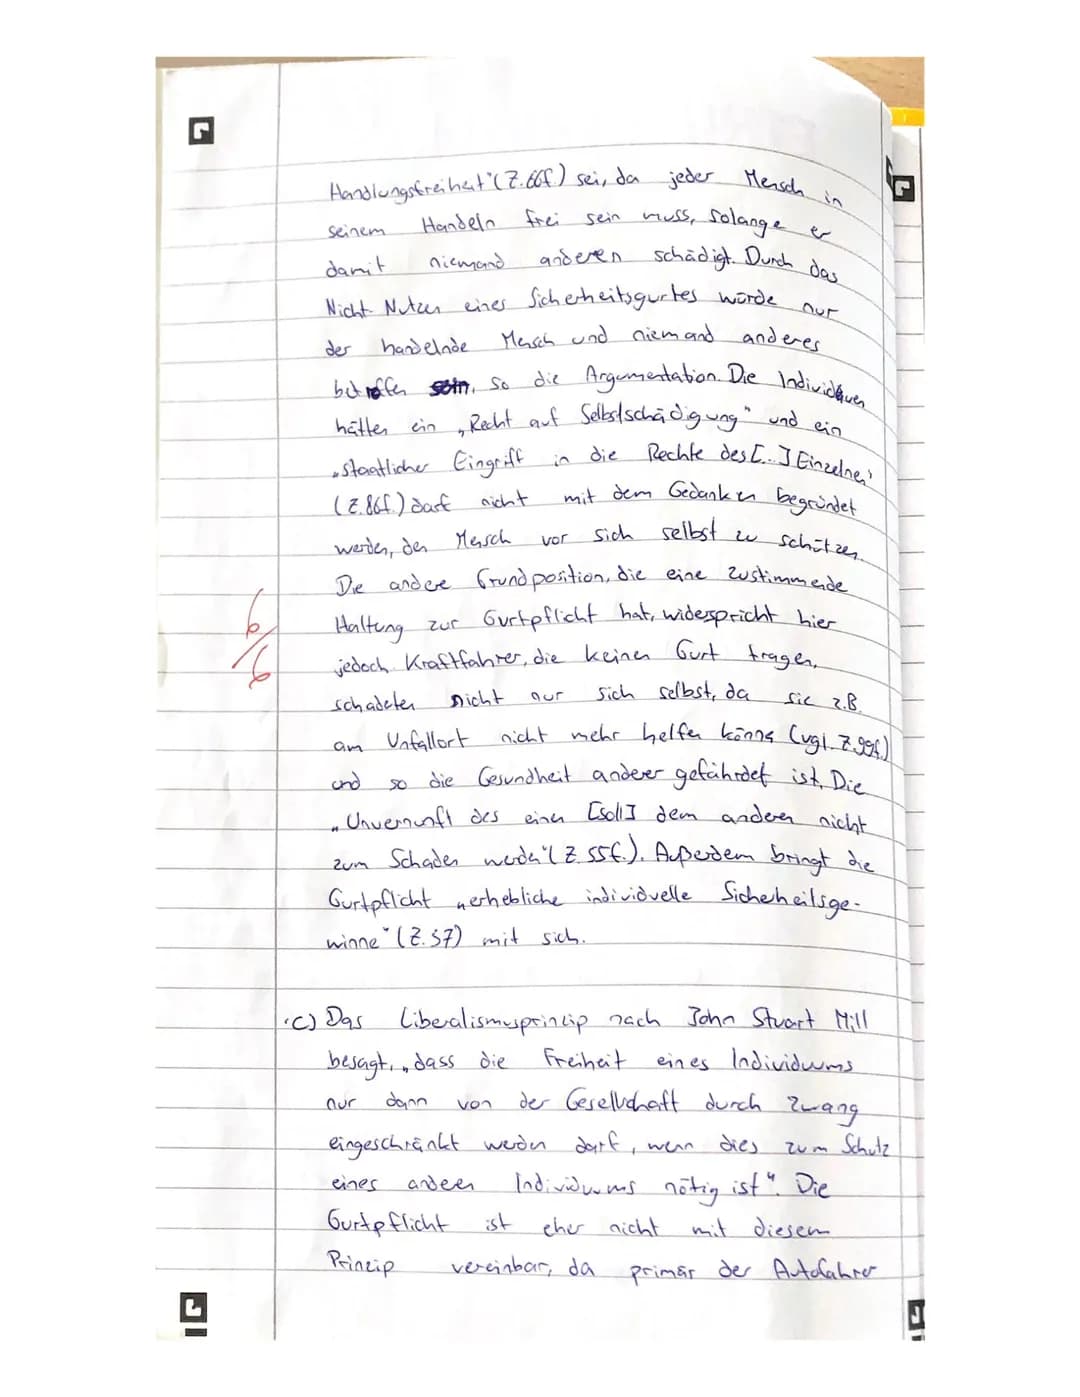 Handlungsfreiheit" (Z.66f.) sei, da jeder Mensch in
seinem Handeln frei sein muss, solange er
damit niemand anderen schädigt. Durch das
Nicht-Nutzen eines Sicherheitsgurtes würde nur
der handelnde Mensch und niemand anderes
betroffen sein, so die Argumentation. Die Individuen
hätten ein „Recht auf Selbstschädigung" und ein
„staatlicher Eingriff in die Rechte des [...] Einzelnen"
(Z.86f.) darf nicht mit dem Gedanken begründet
werden, den Mensch vor sich selbst zu schützen.
Die andere Grundposition, die eine zustimmende
Haltung zur Gurtpflicht hat, widerspricht hier
6/6
jedoch. Kraftfahrer, die keinen Gurt tragen,
schadeten nicht nur sich selbst, da sie z.B.
am Unfallort nicht mehr helfen könne (vgl. Z.99f.)
und so die Gesundheit anderer gefährdet ist. Die
„Unvernunft des einen [soll] dem anderen nicht
zum Schaden werden" (Z.55f.). Außerdem bringt die
Gurtpflicht „erhebliche individuelle Sicherheitsge-
winne" (Z.37) mit sich.
c) Das Liberalismusprinzip nach John Stuart Mill
besagt, „dass die Freiheit eines Individuums
nur dann von der Gesellschaft durch Zwang
eingeschränkt werden darf, wenn dies zum Schutz
eines anderen Individuums nötig ist". Die
Gurtpflicht ist eher nicht mit diesem
Prinzip vereinbar, da primär der Autofahrer